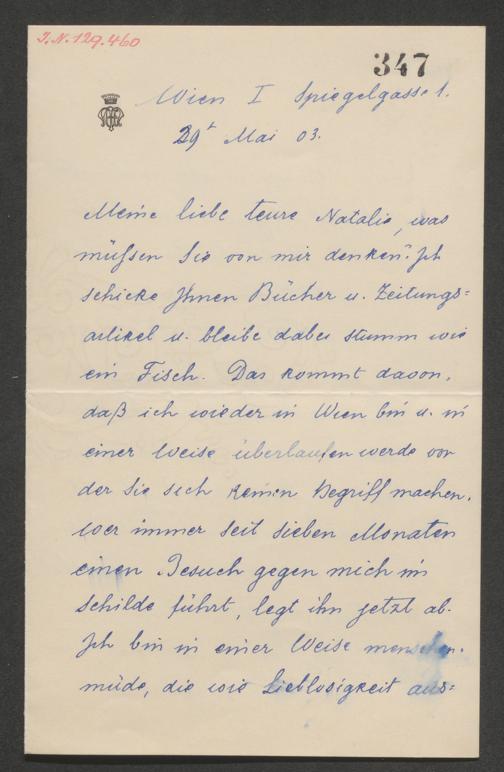 I.N. 129.460
347
Wien I Spiegelgasse 1.
29t Mai 03.
Meine liebe teure Natalie, was
müßen Sie von mir denken? Ich
schicke Ihnen Bücher u. Zeitungs=
artikel u. bleibe dabei stumm wie
ein Fisch. Das kommt davon,
daß ich wieder in Wien bin u. in
einer Weise überlaufen werde von
der Sie sich keinen Begriff machen.
Wer immer seit sieben Monaten
einen Besuch gegen mich im
Schilde führt, legt ihn jetzt ab.
Ich bin in einer Weise menschen-
müde, die wie Lieblosigkeit aus=